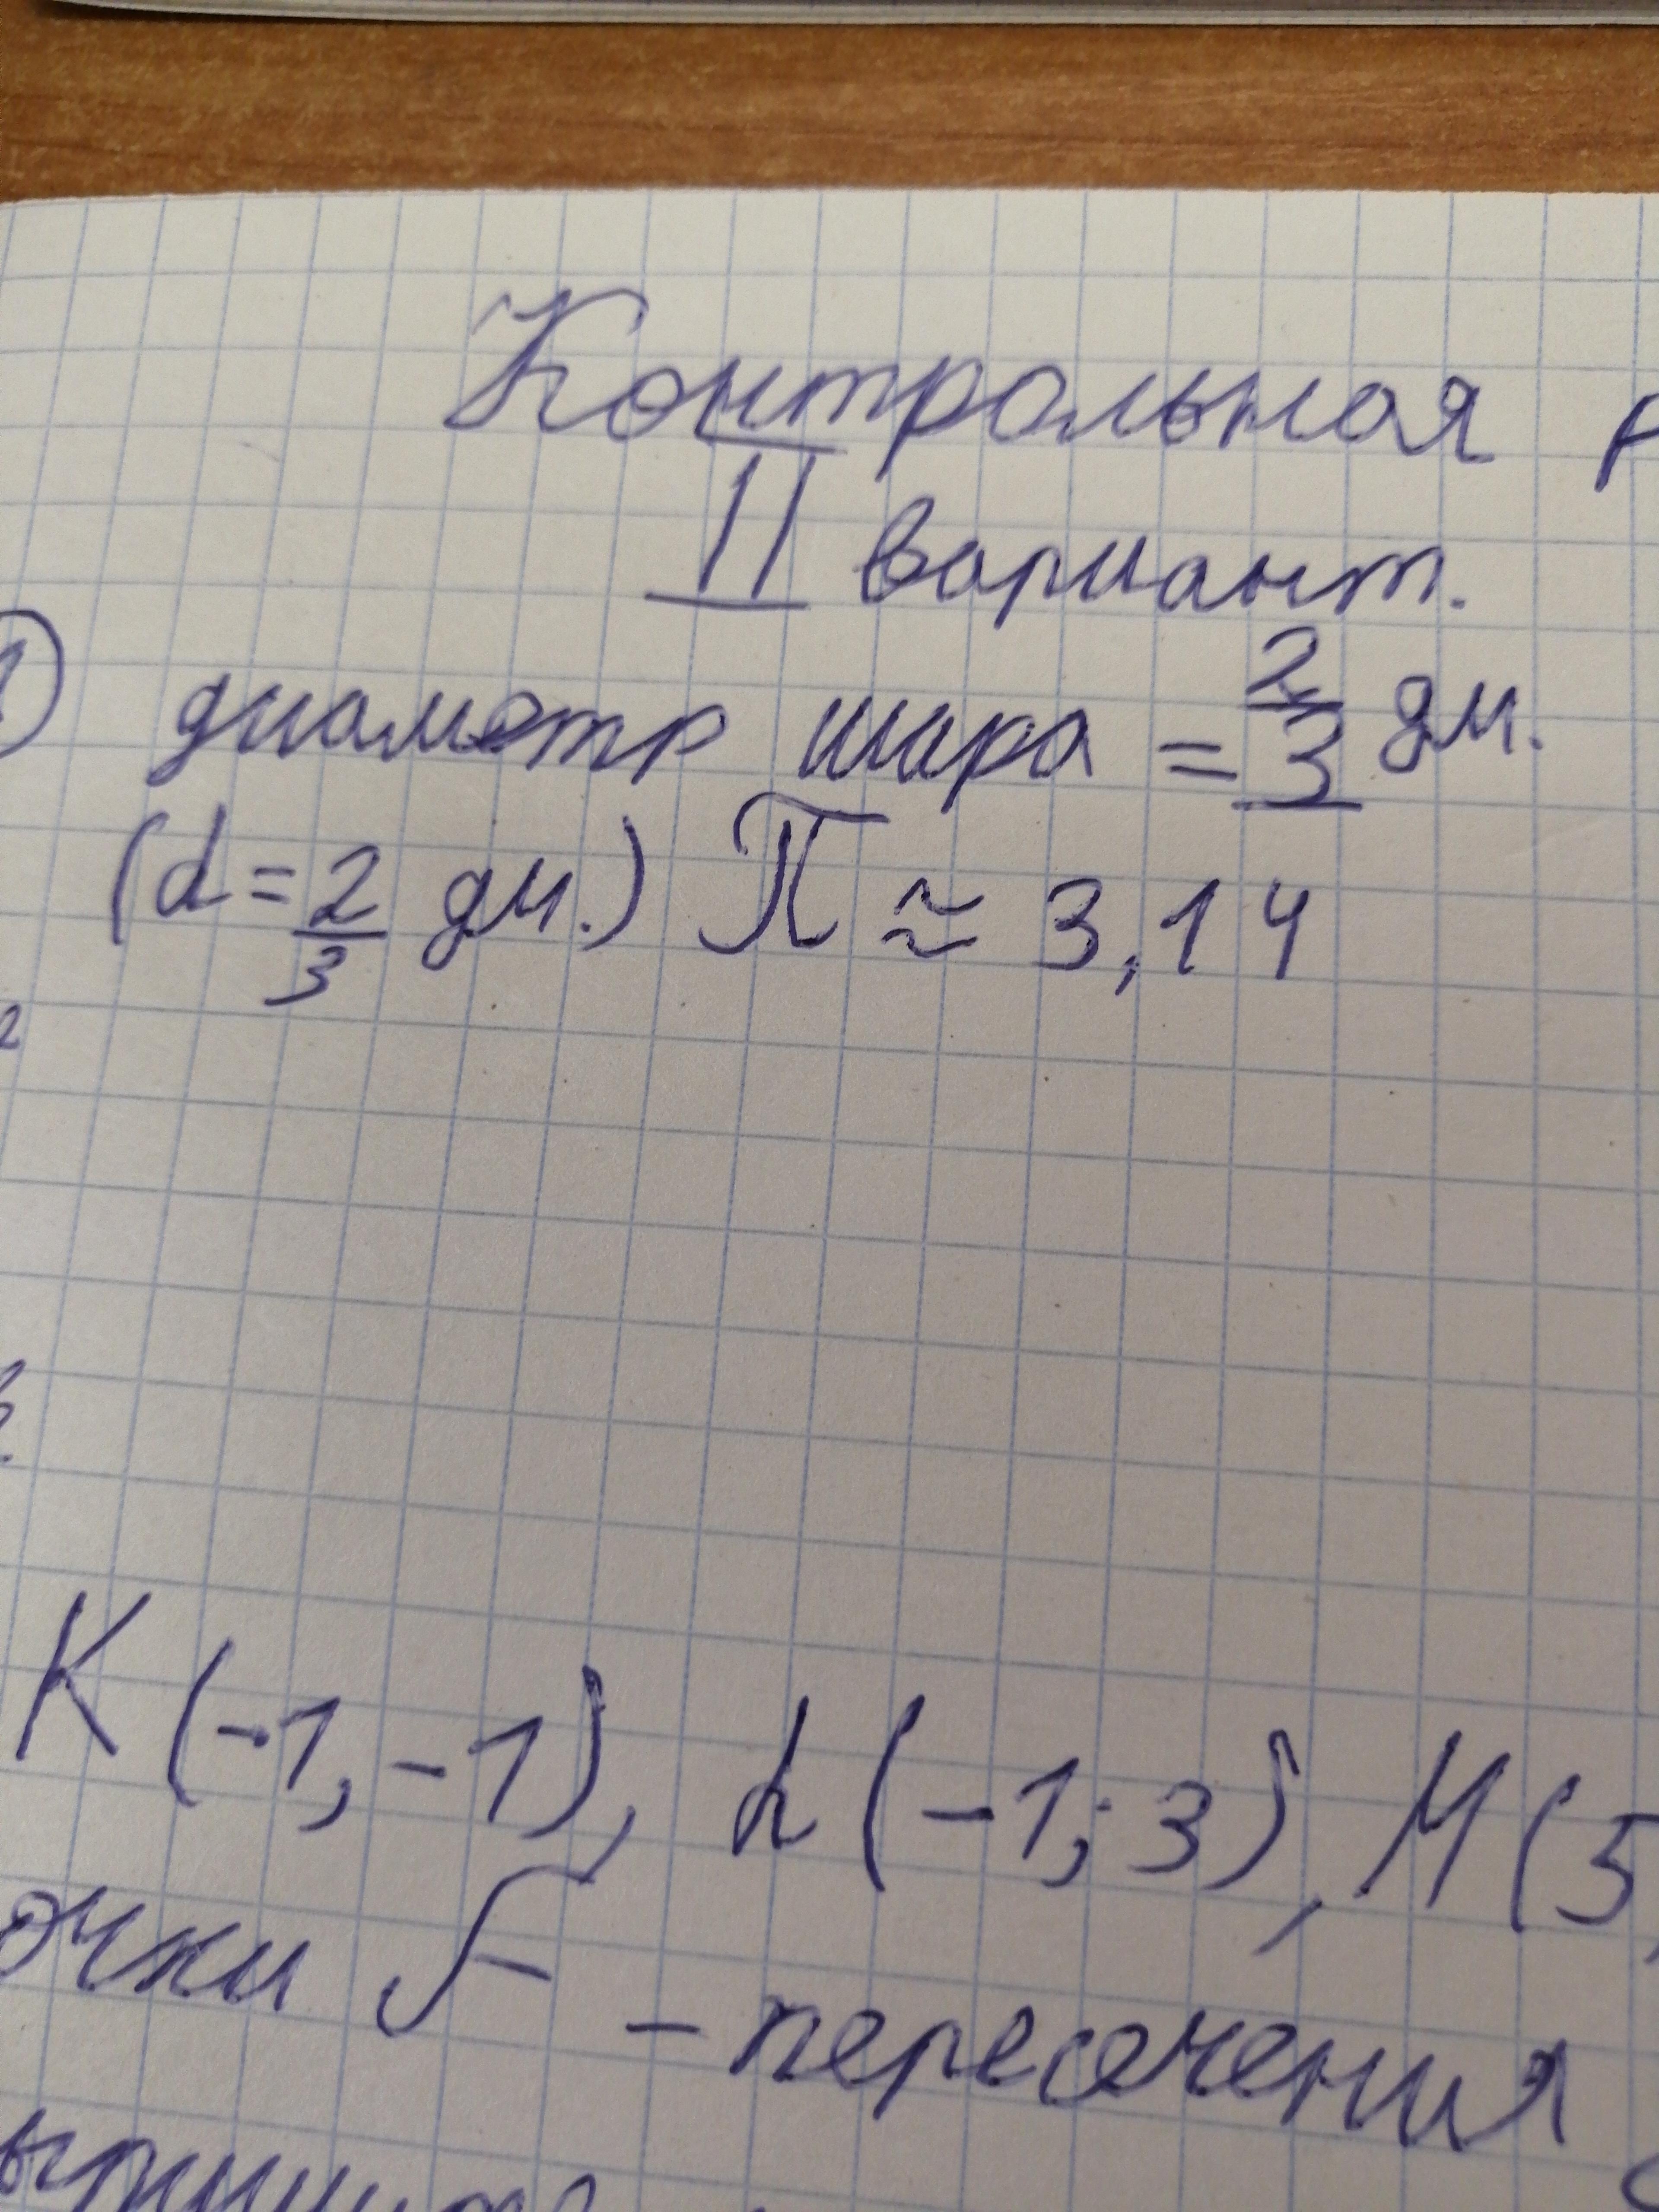 Контрольная
II вариант.
1) диаметр шара = 2/3 дм.
(d = 2/3 дм.) π ≈ 3,14
2
K(-1,-1), L(-1;3), M(5,
очки F - пересечения